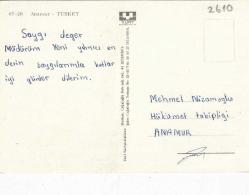 07-20 Anamur - TURKEY
2610
Saygı değer
Müdürüm Yeni yılınızı en
derin saygılarımla kutlar
iyi günler dilerim.
Mehmet Nizamoğlu
Hükümet tabipliği
ANAMUR